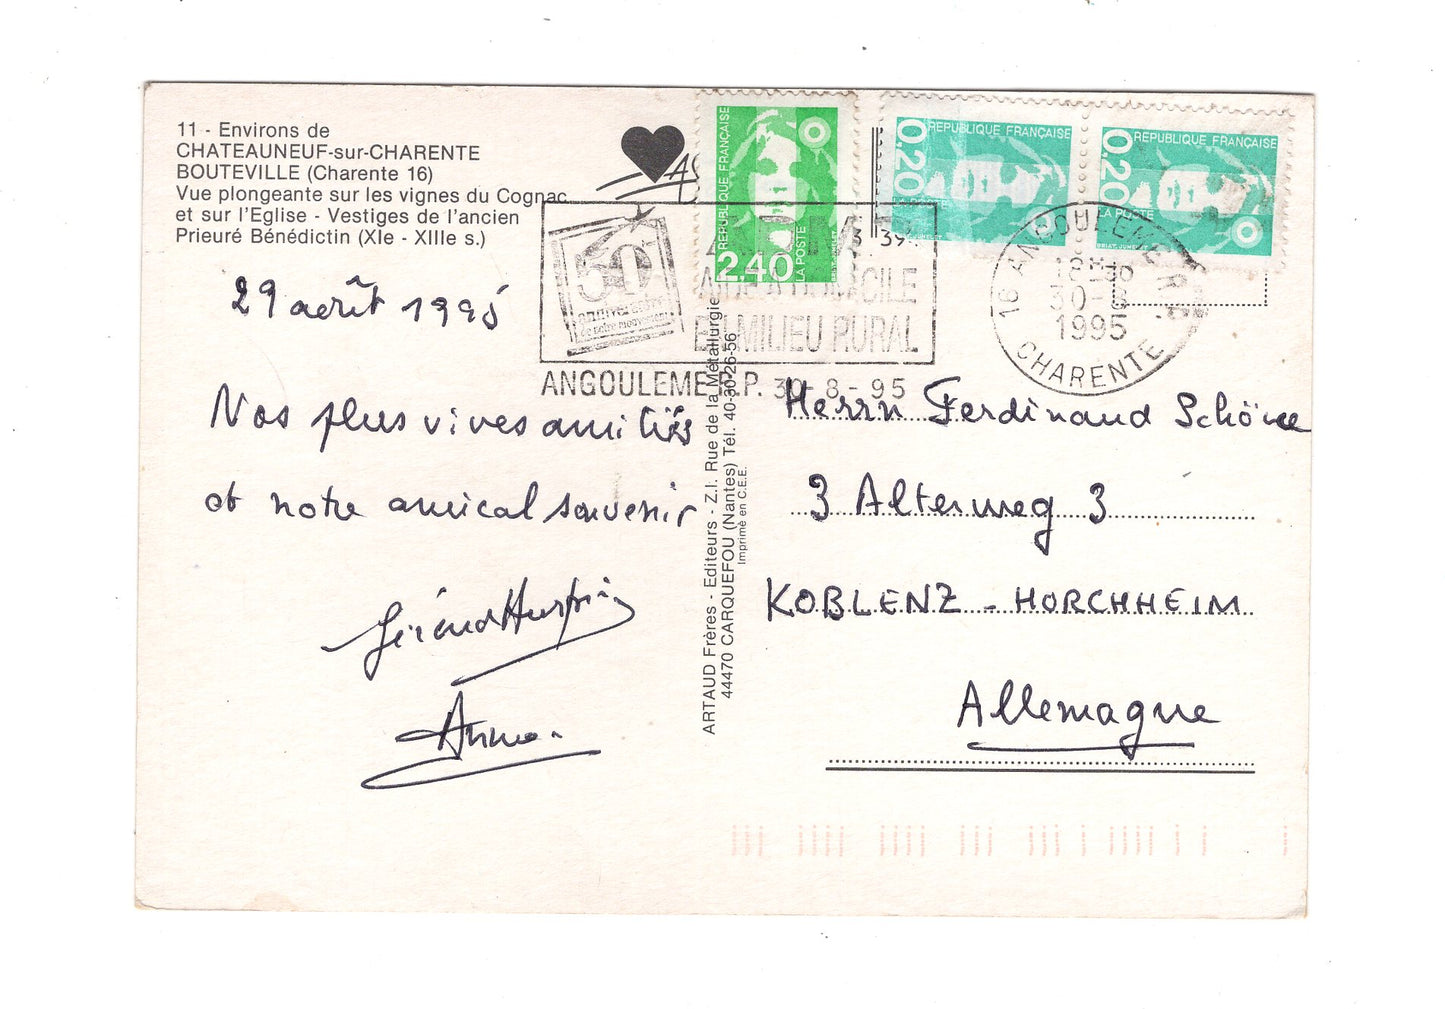 11 - Environs de
CHATEAUNEUF-sur-CHARENTE
BOUTEVILLE (Charente 16)
Vue plongeante sur les vignes du Cognac
et sur l'Eglise - Vestiges de l'ancien
Prieuré Bénédictin (XIe - XIIIe s.)
29 août 1995
Nos plus vives amitiés
et notre amical souvenir
REPUBLIQUE FRANÇAISE
REPUBLIQUE FRANÇAISE
2,40
LA POSTE
0,20
REPUBLIQUE FRANÇAISE
0,20
REPUBLIQUE FRANÇAISE
LA POSTE
50
anniversaire
de notre mouvement
A DOMICILE
EN MILIEU RURAL
ANGOULEME R.P. 30-8-95
16 ANGOULEME R.P.
18H30
30-8
1995
CHARENTE
ARTAUD Frères - Editeurs - Z.I. Rue de la Métallurgie
44470 CARQUEFOU (Nantes) Tél. 40-30-26-56
Imprimé en C.E.E.
Herrn Ferdinand Schöne
3 Alterweg 3
KOBLENZ - HORCHHEIM
Allemagne